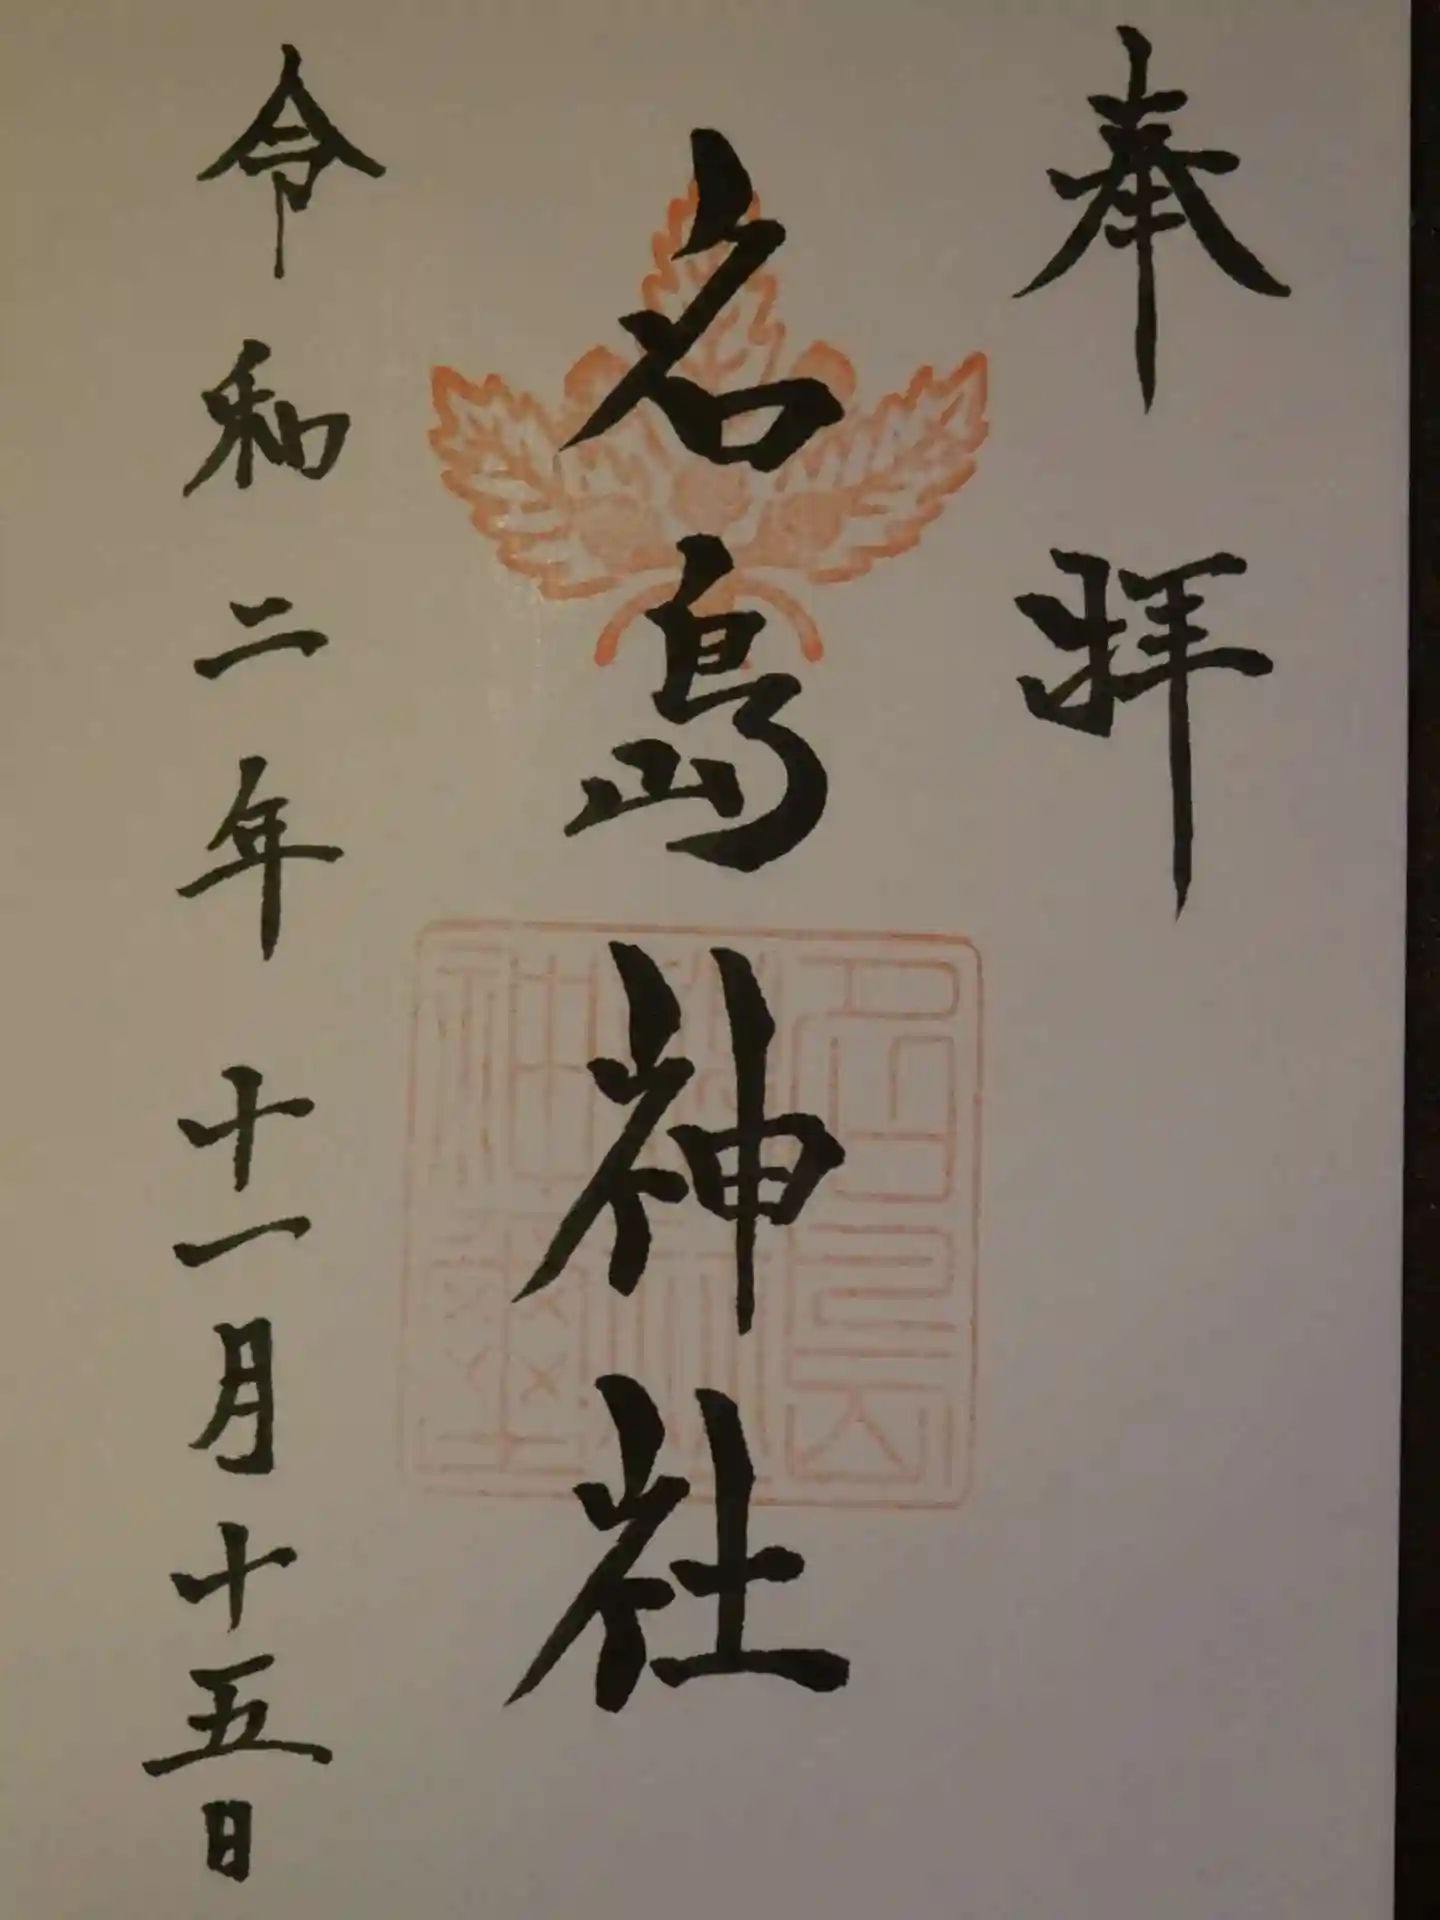 奉拝
名島神社
令和二年十一月十五日